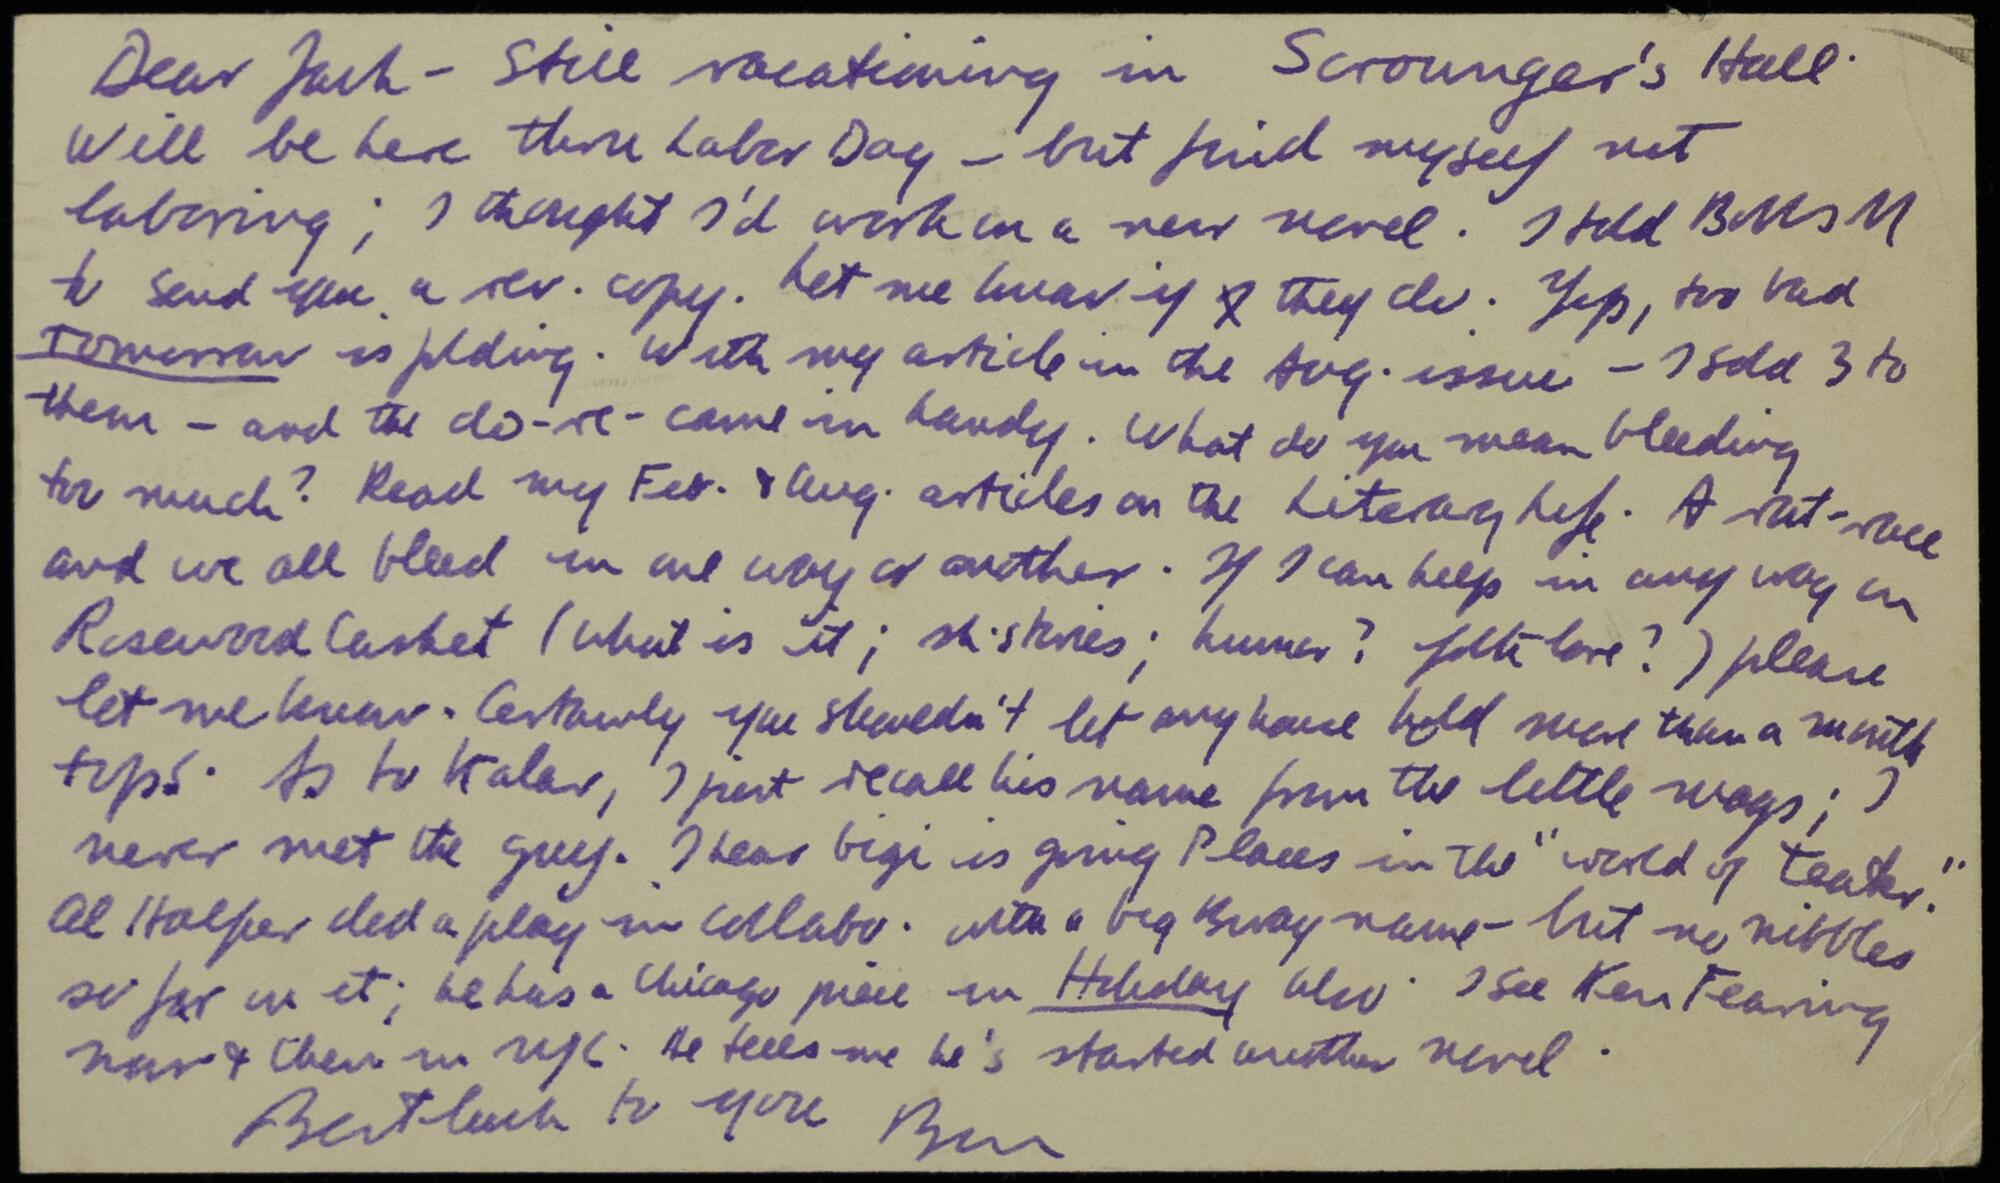 Dear Jack - Still vacationing in Scrounger's Hall.
Will be here thru Labor Day - but find myself not
laboring; I thought I'd work on a new novel. I told BMs M
to send you a rev. copy. Let me know if they do. Yep, too bad
Tomorrow is folding. With my article in the Aug. issue - I sold 3 to
them - and the do-re- came in handy. What do you mean bleeding
too much? Read my Feb. & Aug. articles on the Literary Life. A rat-race
and we all bleed in one way or another. If I can help in any way on
Rosewood Casket (what is it; sh. stories; humor? folk lore?) please
let me know. Certainly you shouldn't let any house hold more than a month
tops. As to Kalar, I just recall his name from the little mags; I
never met the guy. I hear Gigi is going Places in the "world of teater."
Al Halper did a play in collabo. with a big Bway name - but no nibbles
so far on it; he has a Chicago piece in Holiday also. I see Ken Fearing
now & then in NYC. He tells me he's started another novel.
Best luck to you Ben